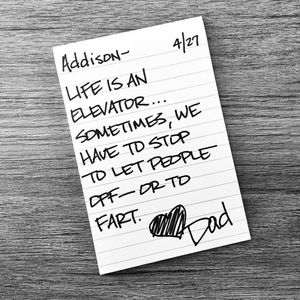 Addison- 4/27
LIFE IS AN
ELEVATOR...
SOMETIMES, WE
HAVE TO STOP
TO LET PEOPLE
OFF-OR TO
FART.
Dad